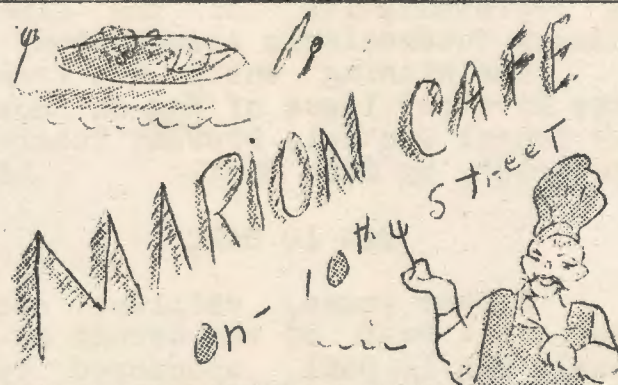 MARION CAFE
on 10th Street